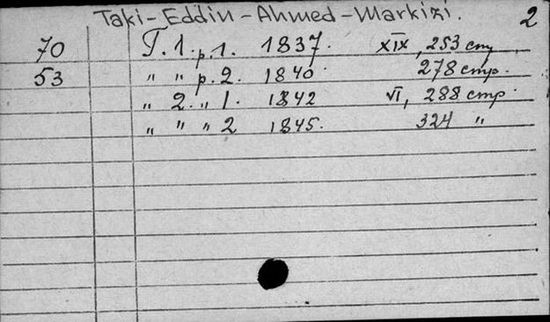 Taki-Eddin-Ahmed-Markizi. 2
70 Т. 1. p. 1. 1837. XIX, 253 стр
53 „ „ p. 2. 1840. 278 стр.
„ 2. „ 1. 1842 VI, 288 стр.
„ „ „ 2 1845. 324 „